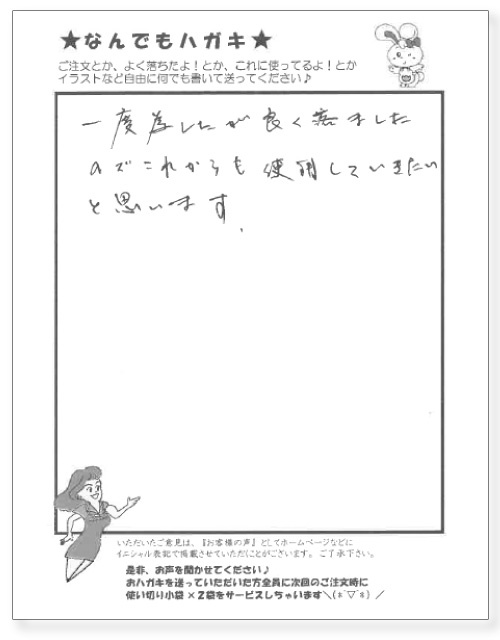 ★なんでもハガキ★
ご注文とか、よく落ちたよ！とか、これに使ってるよ！とか
イラストなど自由に何でも書いて送ってください♪
一度落したが良く落ました
のでこれからも使用していきたい
と思います。
いただいたご意見は、『お客様の声』としてホームページなどに
イニシャル表記で掲載させていただくことがございます。ご了承下さい。
是非、お声を聞かせてください♪
おハガキを送っていただいた方全員に次回のご注文時に
使い切り小袋×2袋をサービスしちゃいます＼(*ﾟ▽ﾟ*)／